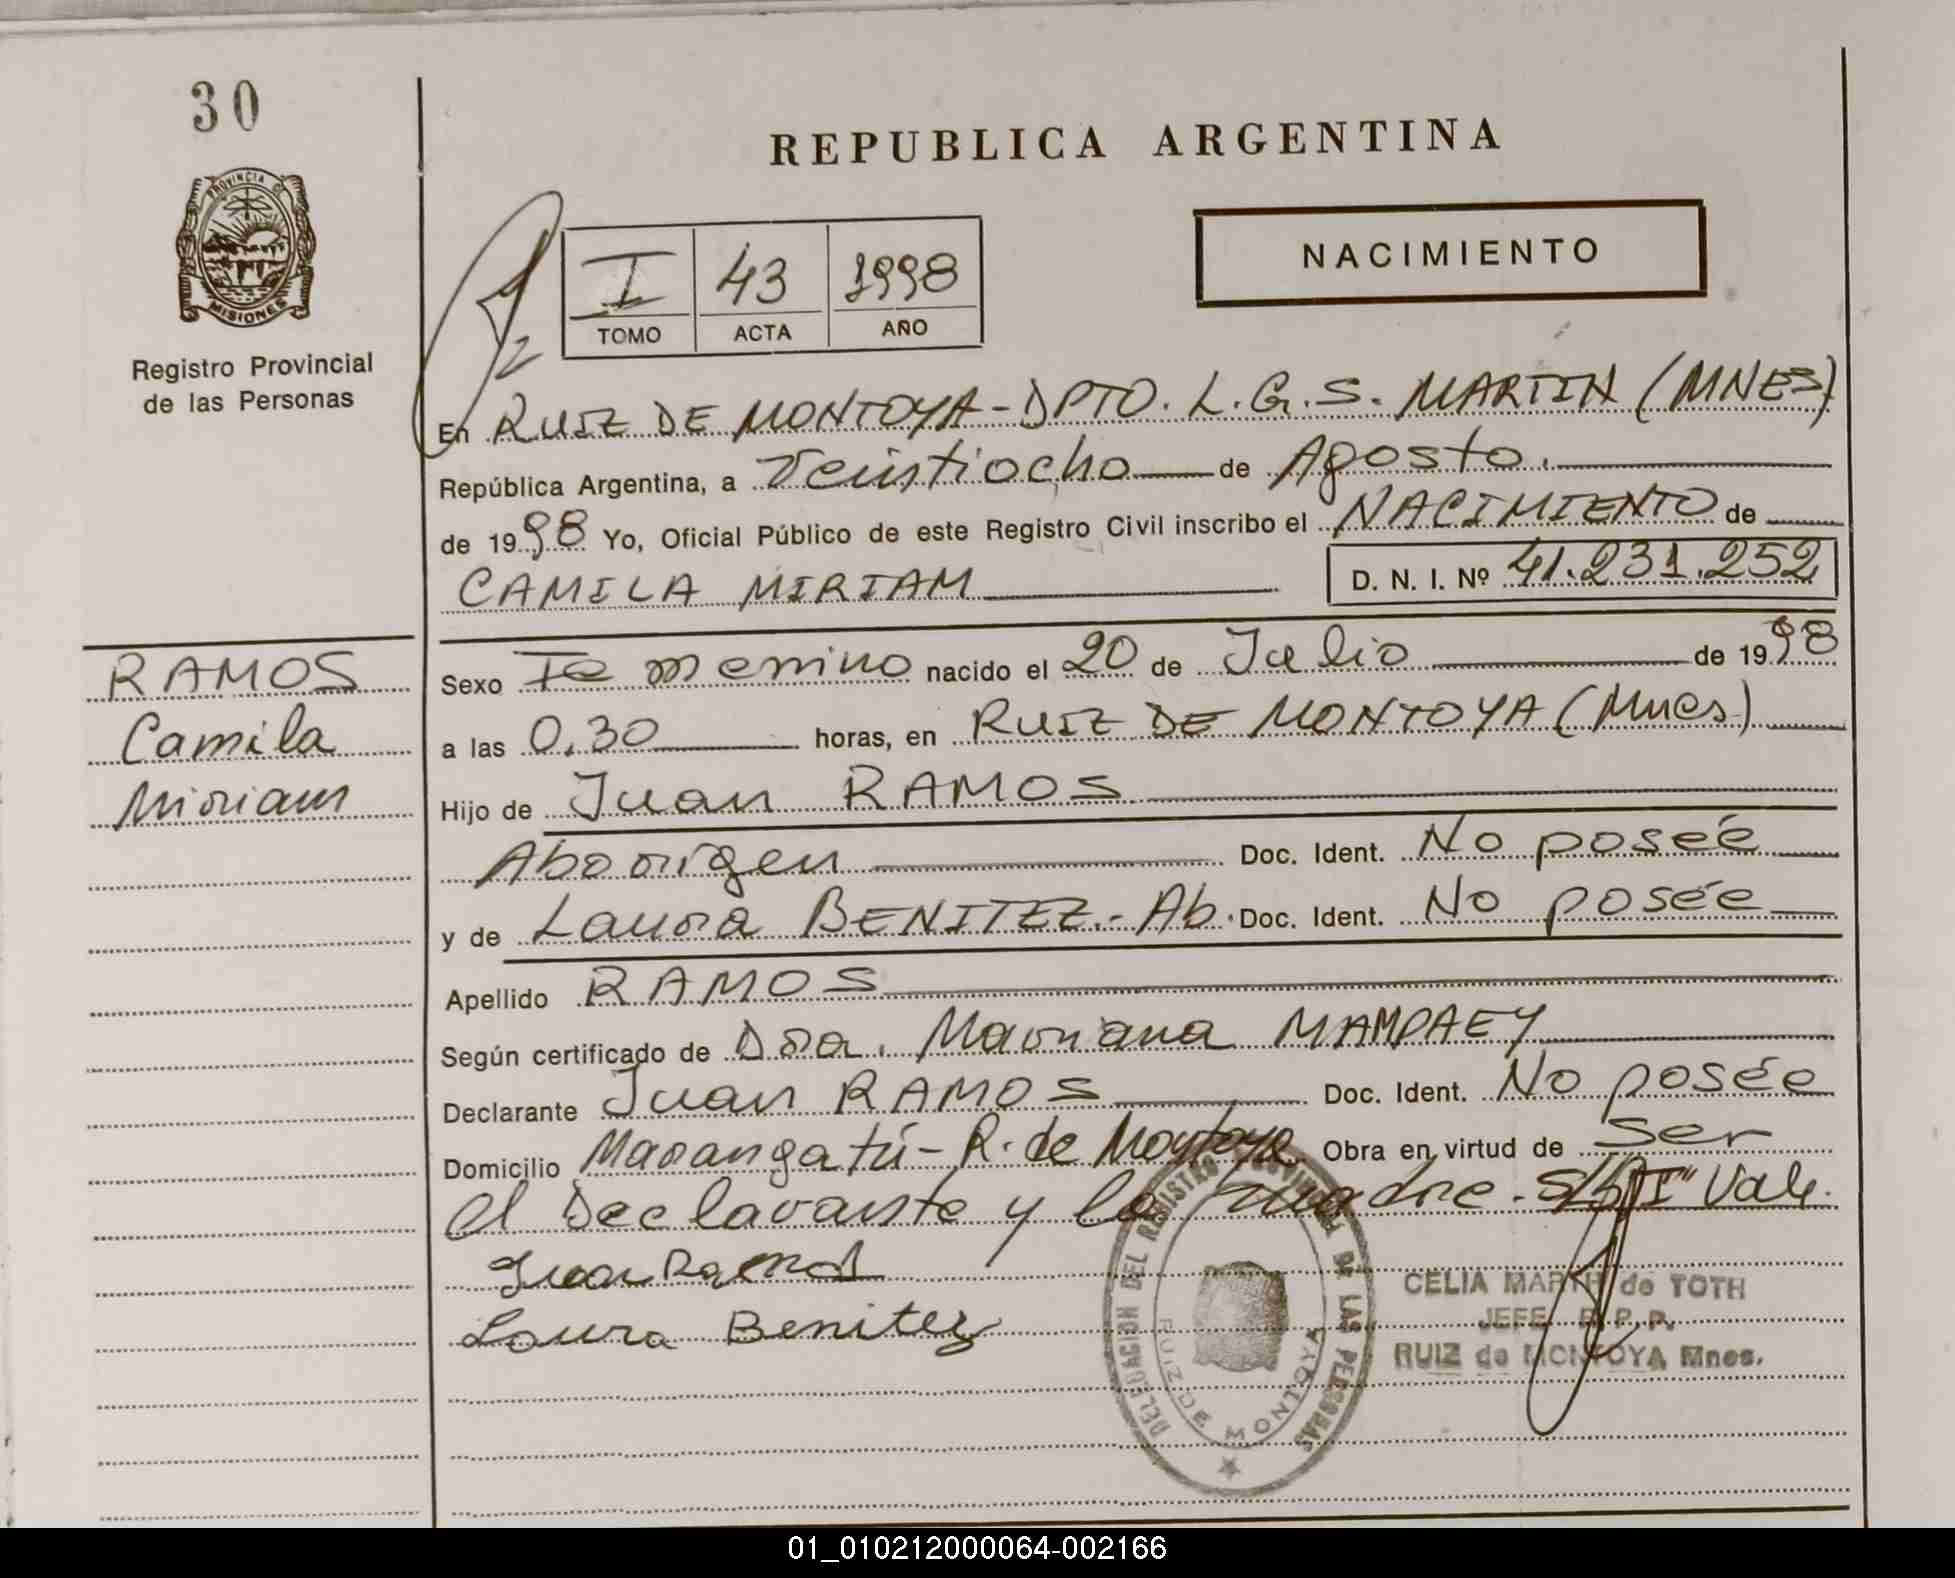 30
REPUBLICA ARGENTINA
PROVINCIA DE
MISIONES
Registro Provincial
de las Personas
I 43 1998
TOMO ACTA AÑO
NACIMIENTO
En RUIZ DE MONTOYA - DPTO. L.G.S. MARTIN (MNES)
República Argentina, a Veintiocho de Agosto.
de 1998 Yo, Oficial Público de este Registro Civil inscribo el NACIMIENTO de
CAMILA MIRIAM D. N. I. Nº 41.231.252
RAMOS
Camila
Miriam
Sexo Femenino nacido el 20 de Julio de 1998
a las 0.30 horas, en RUIZ DE MONTOYA (Mnes)
Hijo de Juan RAMOS
Aborigen Doc. Ident. No poseé
y de Laura BENITEZ.- Ab. Doc. Ident. No poseé
Apellido RAMOS
Según certificado de Dra. Mariana MAMPAEY
Declarante Juan RAMOS Doc. Ident. No posée
Domicilio Marangatú - R. de Montoya Obra en virtud de ser
el Declarante y la madre. "I" Vale.
Juan Ramos
Laura Benitez
DELEGACION DEL REGISTRO PROVINCIAL DE LAS PERSONAS
RUIZ DE MONTOYA
CELIA de TOTH
JEFE R. P. P.
RUIZ de MONTOYA Mnes.
01_010212000064-002166